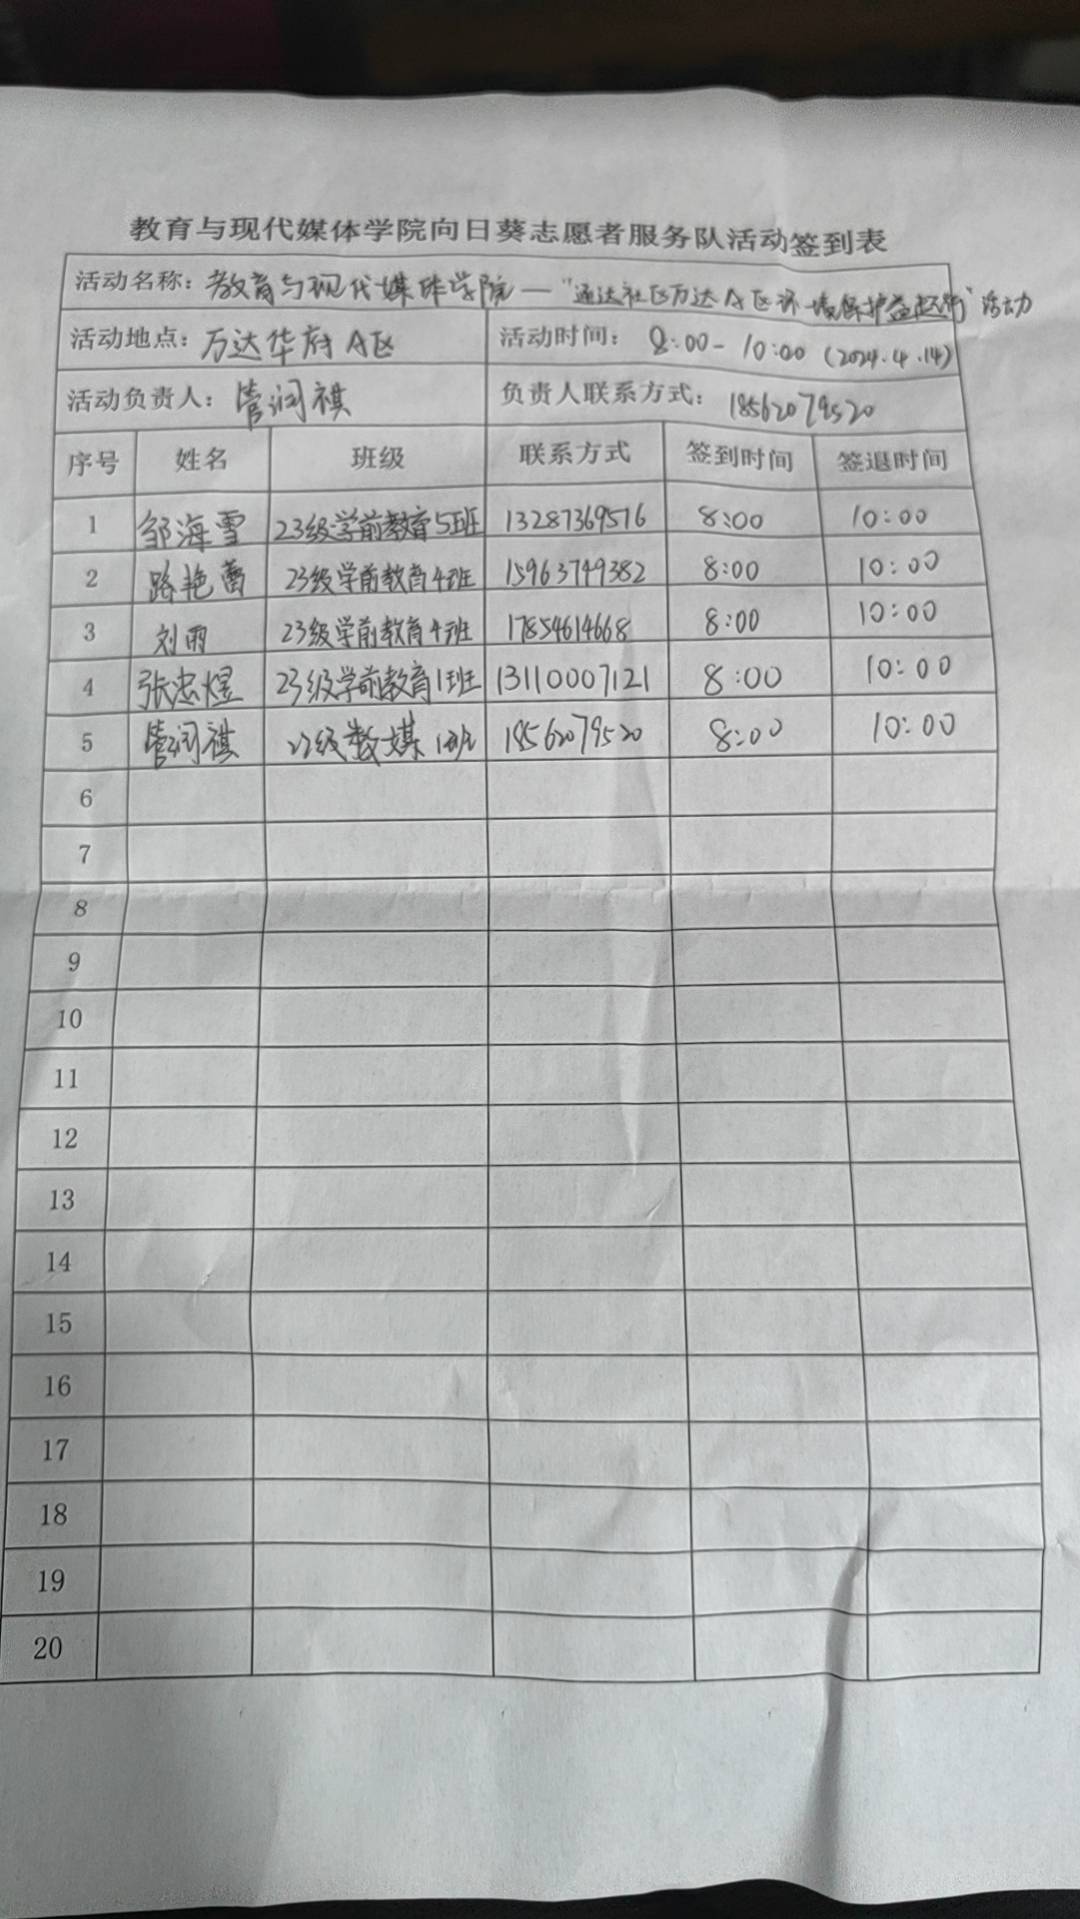 教育与现代媒体学院向日葵志愿者服务队活动签到表
活动名称：教育与现代媒体学院—“通达社区万达A区环境保护益起行”活动
活动地点：万达华府A区 活动时间：8:00-10:00（2024.4.14）
活动负责人：管润祺 负责人联系方式：18562079520
序号 姓名 班级 联系方式 签到时间 签退时间
1 邹海雪 23级学前教育5班 13287369516 8:00 10:00
2 路艳蕾 23级学前教育4班 15963749382 8:00 10:00
3 刘雨 23级学前教育4班 17854614668 8:00 10:00
4 张忠煜 23级学前教育1班 13110007121 8:00 10:00
5 管润祺 22级数媒1班 18562079520 8:00 10:00
6
7
8
9
10
11
12
13
14
15
16
17
18
19
20